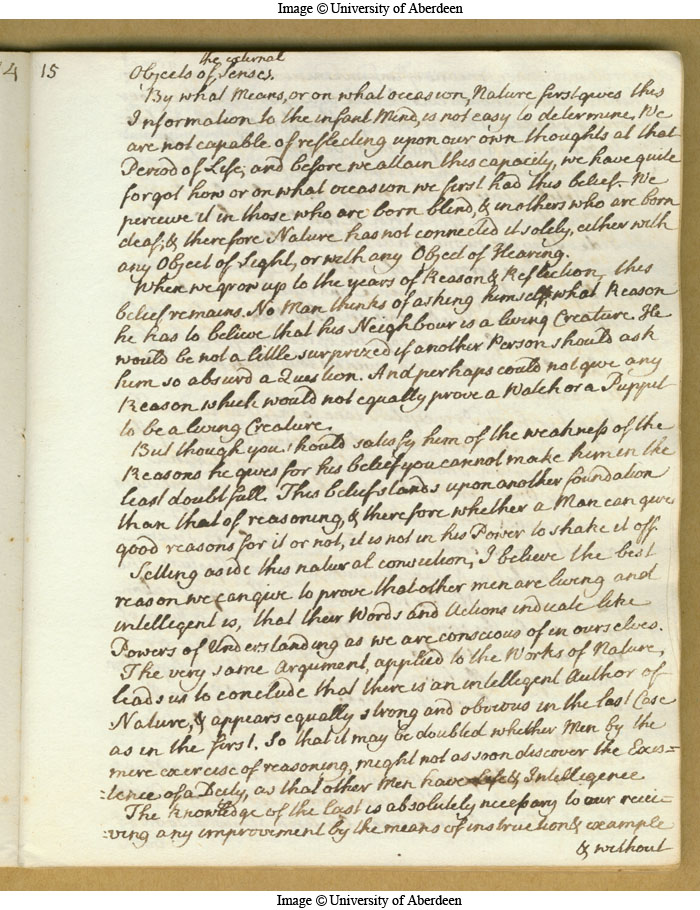 Image © University of Aberdeen
4
15
the external
Objects of Senses.
By what Means, or on what occasion, Nature first gives this
Information to the infant Mind, is not easy to determine. We
are not capable of reflecting upon our own thoughts at that
Period of Life; and before we attain this capacity, we have quite
forgot how or on what occasion we first had this belief. We
perceive it in those who are born blind, & in others who are born
deaf; & therefore Nature has not connected it solely, either with
any Object of Sight, or with any Object of Hearing.
When we grow up to the years of Reason & Reflection, this
belief remains. No Man thinks of asking himself what Reason
he has to believe that his Neighbour is a living Creature. He
would be not a little surprized if another Person should ask
him so absurd a Question. And perhaps could not give any
Reason which would not equally prove a Watch or a Puppet
to be a living Creature.
But though you should satisfy him of the weakness of the
Reasons he gives for his belief you cannot make him in the
least doubtfull. This belief stands upon another foundation
than that of reasoning, & therefore whether a Man can give
good reasons for it or not, it is not in his Power to shake it off.
Setting aside this natural conviction, I believe the best
reason we can give to prove that other men are living and
intelligent is, that their Words and Actions indicate like
Powers of Understanding as we are conscious of in ourselves.
The very same Argument, applied to the Works of Nature,
leads us to conclude that there is an intelligent Author of
Nature, & appears equally strong and obvious in the last Case
as in the first. So that it may be doubted whether Men by the
mere exercise of reasoning, might not as soon discover the Exis=
=tence of a Deity, as that other Men have Life & Intelligence
The knowledge of the last is absolutely necessary to our recei=
=ving any improvement by the means of instruction & example
& without
Image © University of Aberdeen